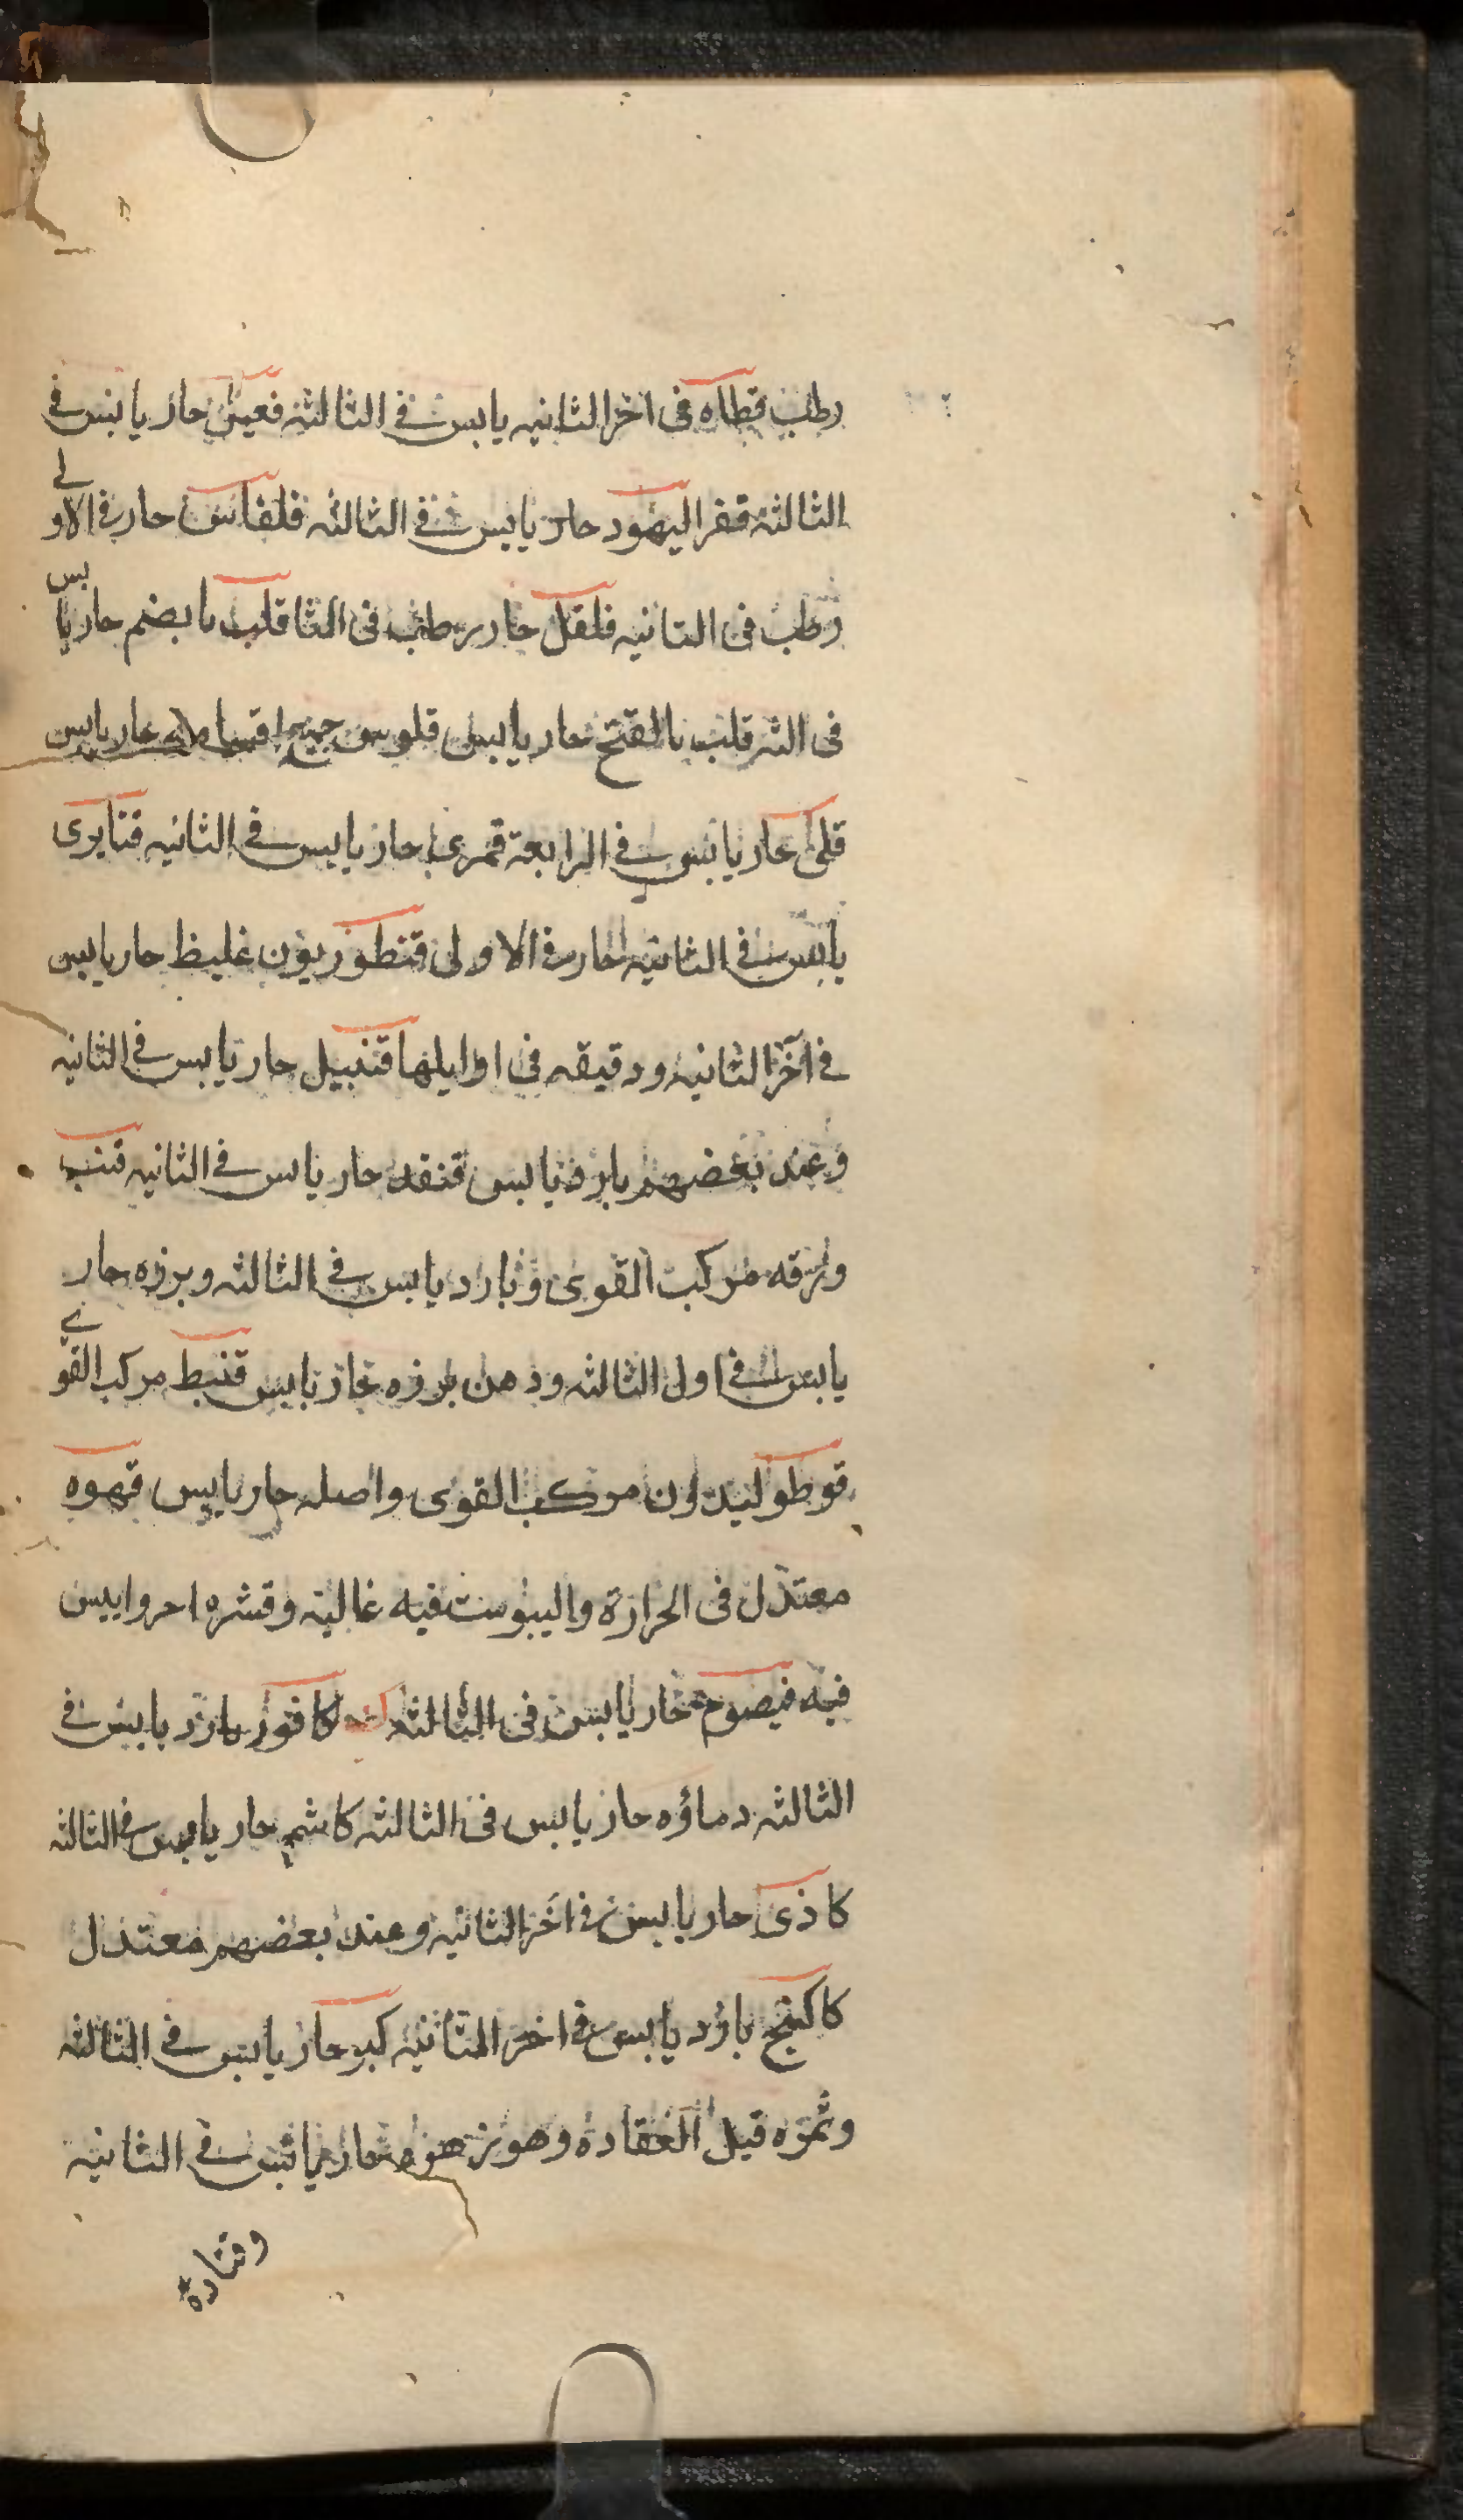 رطب قطاه فى اخر الثانيه يابس فى الثالثه فعيل حار يابس فى
الثالثه قفر اليهود حار يابس فى الثالثه قلقاس حار فى الاولى
رطب فى الثانيه فلفل حار رطب فى الثا قلب بابضم حار يابس
فى الثر قلب بالفتح حار يابس قلوس جميع حار يابس
قلى حار يابس فى الرابعة قمرى حار يابس فى الثانيه قنابرى
يابس فى الثانيه حار فى الاولى قنطوريون غليظ حار يابس
فى آخر الثانيه ودقيقه فى اوايلها قنبيل حار يابس فى الثانيه
وعند بعضهم بارد يابس قنفد حار يابس فى الثانيه قنب
ورقه مركب القوى وبارد يابس فى الثالثه وبزره حار
يابس فى اول الثالثه ودهن بزره حار يابس قنبط مركب القوى
قوطوليدون مركب القوى واصله حار يابس قهوه
معتدل فى الحرارة واليبوست فيه غالبة وقشره احر وايبس
فيه قيصوم حار يابس فى الثالثه كافور بارد يابس فى
الثالثه دماؤه حار يابس فى الثالثه كاشم حار يابس فى الثالثه
كاذى حار يابس فى آخر الثانيه وعند بعضهم معتدل
كاكنج بارد يابس فى اخر الثانيه كبر حار يابس فى الثالثه
وثمره قبل العقاده وهو زهره حار يابس فى الثانية
وقثاره